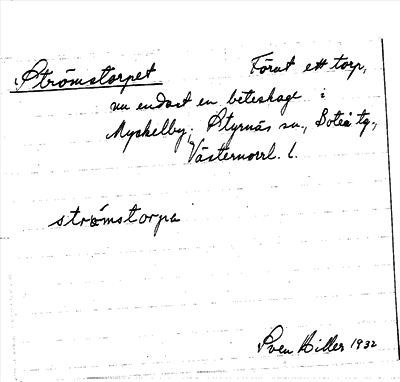 Strömstorpet Förut ett torp,
nu endast en beteshage i
Myckelby, Styrnäs sn., Boteå tg.,
Västernorrl. l.
strǿmstorpa
Sven Hiller 1932